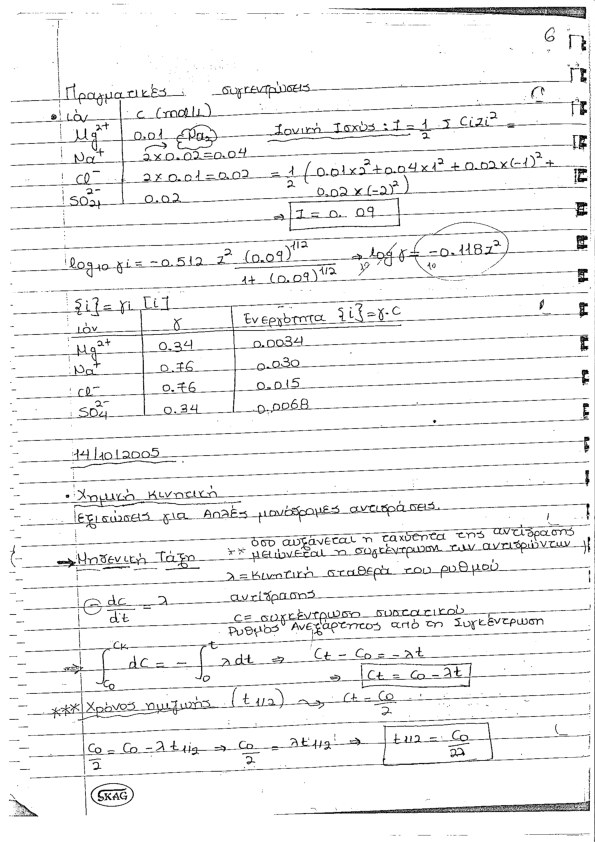 6
Πραγματικές συγκεντρώσεις
• ιόν c (mol/L)
Mg²⁺ 0.01 Na₂ Ιονική Ισχύς: I = 1/2 Σ Cizi² =
Na⁺ 2x0.02=0.04
Cl⁻ 2x0.01=0.02 = 1/2 (0.01x2²+0.04x1²+0.02x(-1)²+
SO₄²⁻ 0.02 0.02x(-2)²)
⇒ I = 0.09
log₁₀ γi = -0.512 z² (0.09)^1/2 / 1+(0.09)^1/2 → log₁₀ γ = -0.118z²
{i} = γi [i]
ιόν γ Ενεργότητα {i}=γ.c
Mg²⁺ 0.34 0.0034
Na⁺ 0.76 0.030
Cl⁻ 0.76 0.015
SO₄²⁻ 0.34 0.0068
14/10/2005
• Χημική Κινητική
Εξισώσεις για Απλές μονόδρομες αντιδράσεις.
→ Μηδενική Τάξη όσο αυξάνεται η ταχύτητα της αντίδρασης
** μειώνεται η συγκέντρωση των αντιδρώντων
λ = Κινητική σταθερά του ρυθμού
αντίδρασης
- dc/dt = λ
c = συγκέντρωση συστατικού
Ρυθμός Ανεξάρτητος από τη Συγκέντρωση
⇒ ∫ dc = - ∫ λdt ⇒ Ct - C₀ = -λt
⇒ Ct = C₀ - λt
*** Χρόνος ημιζωής (t1/2) Ct = C₀/2
C₀/2 = C₀ - λt1/2 ⇒ C₀/2 = λt1/2 ⇒ t1/2 = C₀/2λ
SKAG